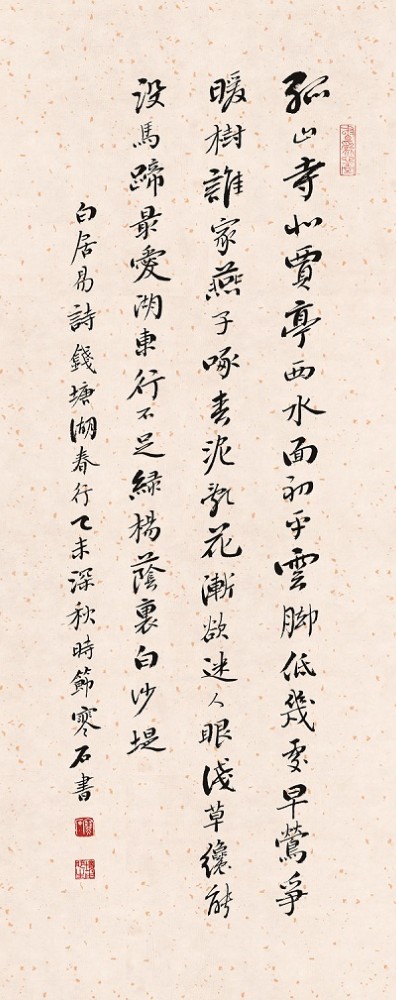 孤山寺北賈亭西水面初平雲脚低幾處早鶯爭
暖樹誰家燕子啄春泥亂花漸欲迷人眼淺草纔能
沒馬蹄最愛湖東行不足綠楊蔭裏白沙堤
白居易詩錢塘湖春行乙未深秋時節寒石書